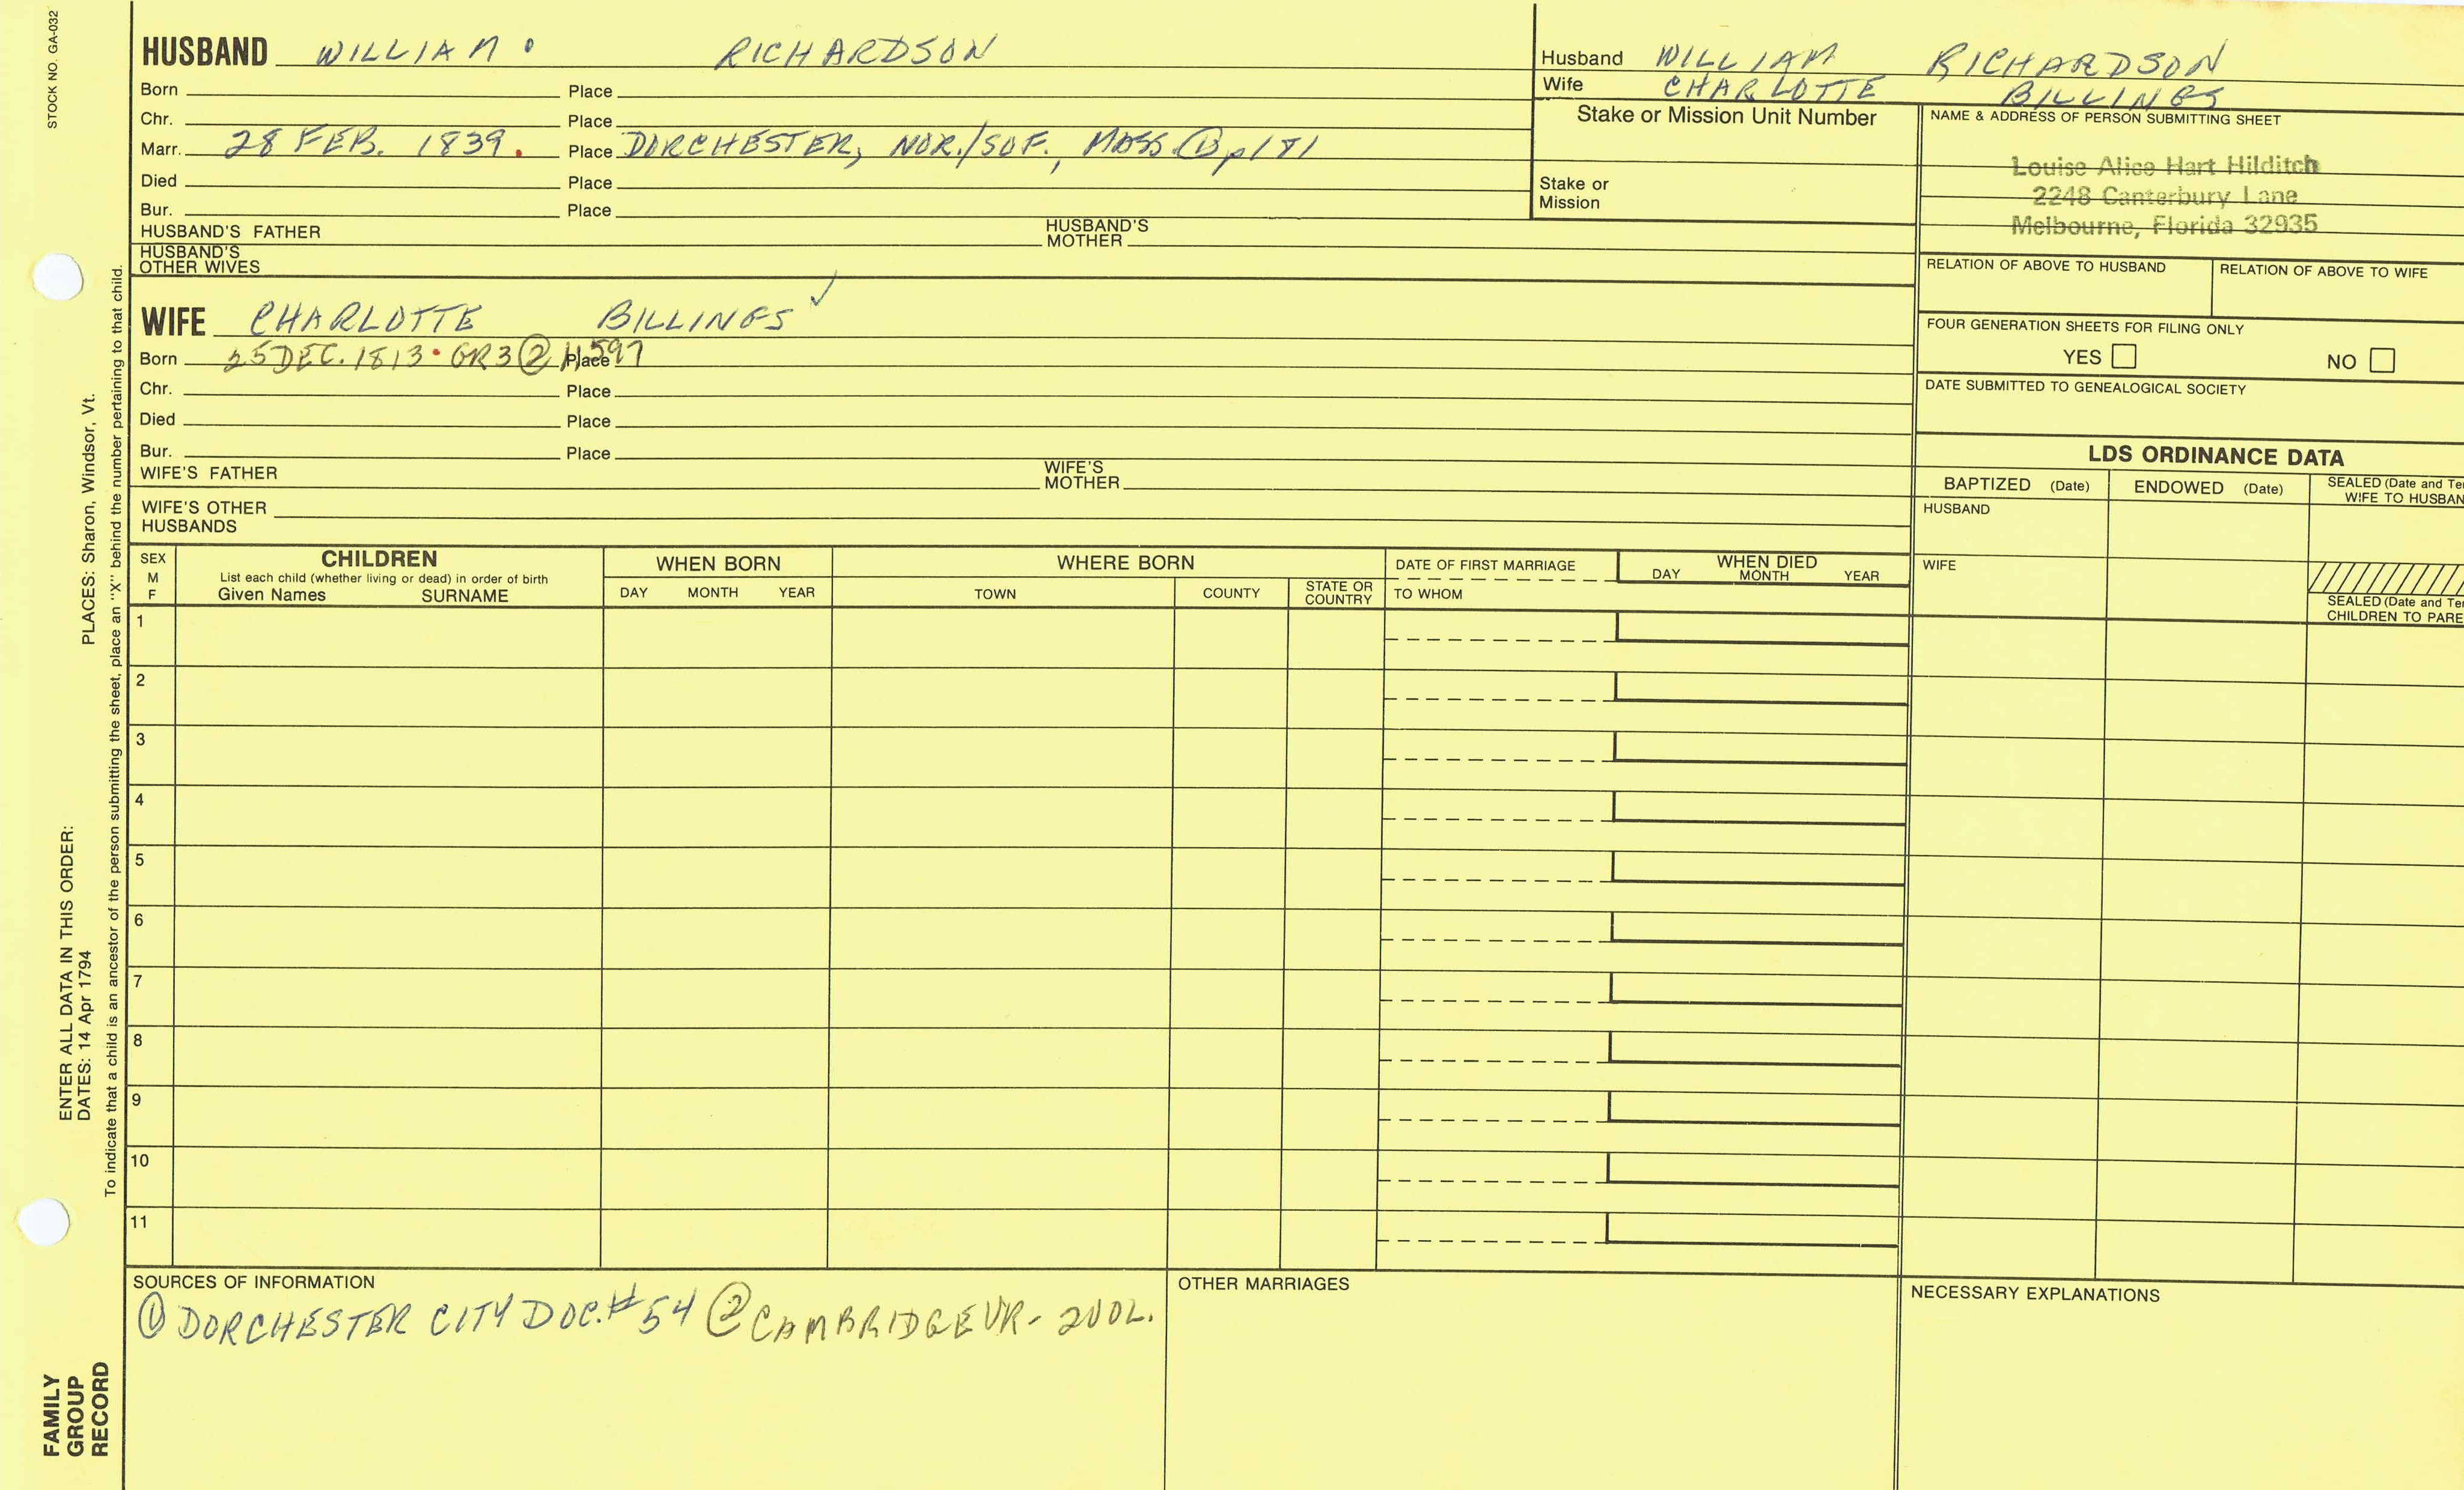 STOCK NO. GA-032
HUSBAND WILLIAM RICHARDSON
Born Place
Chr. Place
Marr. 28 FEB. 1839. Place DORCHESTER, NOR./SUF., MASS. ① p181
Died Place
Bur. Place
HUSBAND'S FATHER HUSBAND'S MOTHER
HUSBAND'S OTHER WIVES
Husband WILLIAM RICHARDSON
Wife CHARLOTTE BILLINGS
Stake or Mission Unit Number
Stake or Mission
NAME & ADDRESS OF PERSON SUBMITTING SHEET
Louise Alice Hart Hilditch
2248 Canterbury Lane
Melbourne, Florida 32935
RELATION OF ABOVE TO HUSBAND RELATION OF ABOVE TO WIFE
FOUR GENERATION SHEETS FOR FILING ONLY
YES NO
DATE SUBMITTED TO GENEALOGICAL SOCIETY
WIFE CHARLOTTE BILLINGS ✓
Born 25 DEC. 1813 • GR3 ② 1,597 Place
Chr. Place
Died Place
Bur. Place
WIFE'S FATHER WIFE'S MOTHER
WIFE'S OTHER HUSBANDS
LDS ORDINANCE DATA
BAPTIZED (Date) ENDOWED (Date) SEALED (Date and Te
WIFE TO HUSBAN
HUSBAND
WIFE
SEALED (Date and Te
CHILDREN TO PARE
SEX M F
CHILDREN
List each child (whether living or dead) in order of birth
Given Names SURNAME
WHEN BORN
DAY MONTH YEAR
WHERE BORN
TOWN COUNTY STATE OR COUNTRY
DATE OF FIRST MARRIAGE
TO WHOM
WHEN DIED
DAY MONTH YEAR
1
2
3
4
5
6
7
8
9
10
11
SOURCES OF INFORMATION
① DORCHESTER CITY DOC. #54 ② CAMBRIDGE VR - 2VOL.
OTHER MARRIAGES
NECESSARY EXPLANATIONS
PLACES: Sharon, Windsor, Vt.
ENTER ALL DATA IN THIS ORDER:
DATES: 14 Apr 1794
To indicate that a child is an ancestor of the person submitting the sheet, place an "X" behind the number pertaining to that child.
FAMILY
GROUP
RECORD